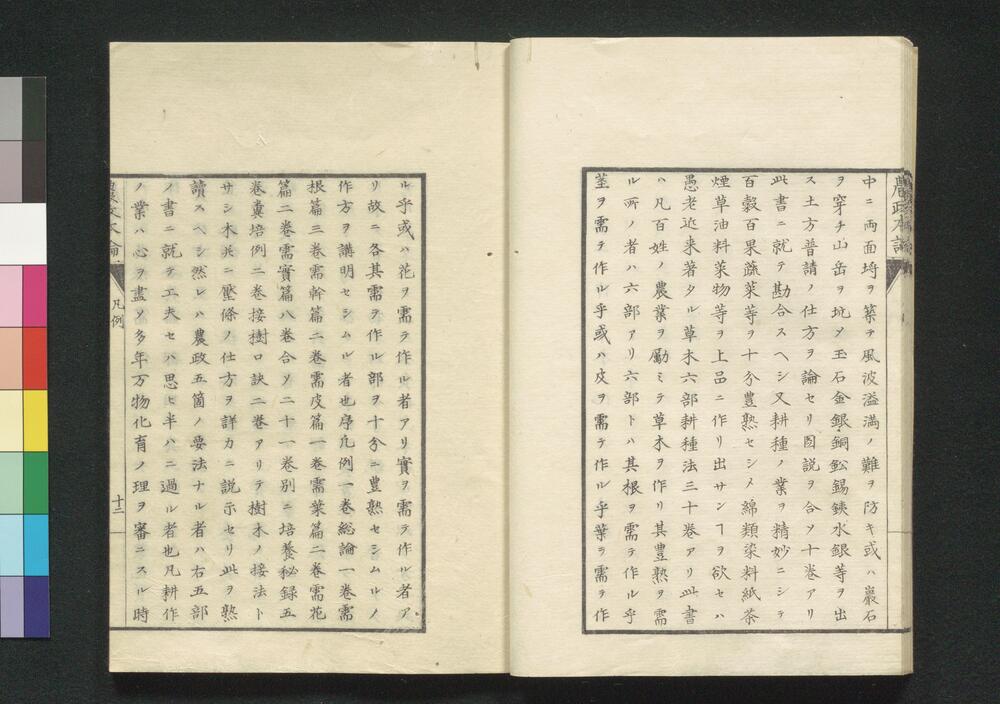 中ニ両面埒ヲ築テ風波溢満ノ難ヲ防キ或ハ巖石
ヲ穿チ山岳ヲ坑メ玉石金銀銅鈆錫鉄水銀等ヲ出
ス土方普請ノ仕方ヲ論セリ図説ヲ合ソ十巻アリ
此書ニ就テ勘合スヘシ又耕種ノ業ヲ精妙ニシテ
百穀百果蔬菜等ヲ十分豊熟セシメ綿類染料紙茶
煙草油料菜物等ヲ上品ニ作リ出サンヿヲ欲セハ
愚老近来著タル草木六部耕種法三十巻アリ此書
ハ凡百姓ノ農業ヲ勵ミテ草木ヲ作リ其豊熟ヲ需
ル所ノ者ハ六部アリ六部トハ其根ヲ需テ作ル乎
茎ヲ需テ作ル乎或ハ皮ヲ需テ作ル乎葉ヲ需テ作
ル乎或ハ花ヲ需テ作ル者アリ實ヲ需テ作ル者ア
リ故ニ各其需テ作ル部ヲ十分ニ豊熟セシムルノ
作方ヲ講明セシムル者也序凡例一巻総論一巻需
根篇三巻需幹篇二巻需皮篇一巻需葉篇二巻需花
篇二巻需實篇八巻合ソ二十一巻別ニ培養秘録五
巻糞培例二巻接樹口訣二巻アリテ樹木ノ接法ト
サシ木共ニ壓條ノ仕方ヲ詳カニ説示セリ此ヲ熟
讀スヘシ然レハ農政五箇ノ要法ナル者ハ右五部
ノ書ニ就テ工夫セハ思ヒ半ハニ過ル者也凡耕作
ノ業ハ心ヲ盡ソ多年万物化育ノ理ヲ審ニスル時
凡例
十二